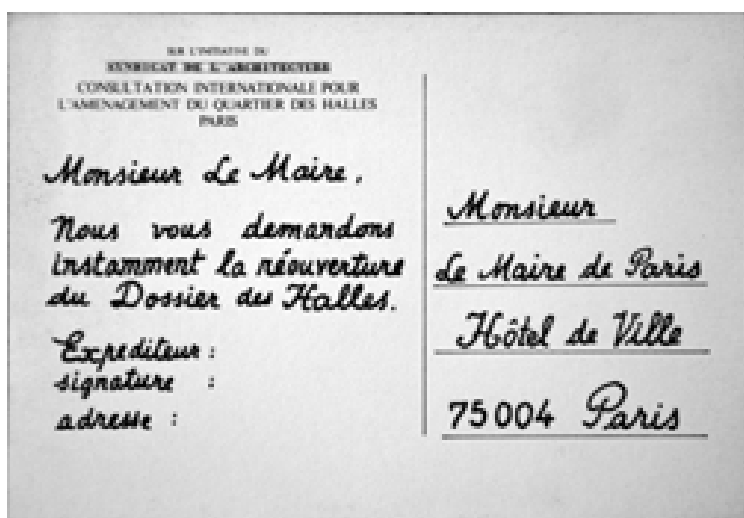 SUR L'INITIATIVE DU
SYNDICAT DE L'ARCHITECTURE
CONSULTATION INTERNATIONALE POUR
L'AMENAGEMENT DU QUARTIER DES HALLES
PARIS
Monsieur Le Maire,
Nous vous demandons
instamment la réouverture
du Dossier des Halles.
Expediteur :
signature :
adresse :
Monsieur
Le Maire de Paris
Hôtel de Ville
75004 Paris